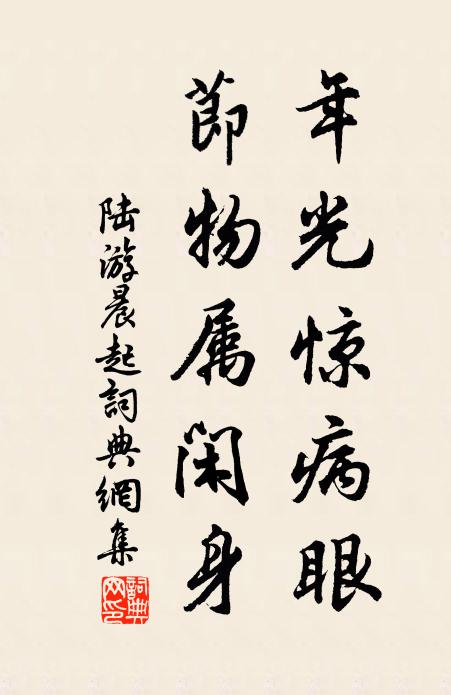 年光惊病眼
節物属閑身
陆游晨起詞典網集
詞典网印